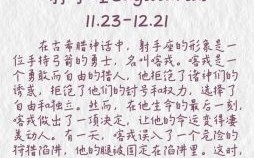 11.23-12.21
在古希腊神话中，射手座的形象是一
位手持弓箭的勇士，名叫喀戎。喀戎是一
个勇敢而自由的猎人，他拒绝了诸神们的
诱惑，拒绝了他们的封号和权力，选择了
自由和独立。然而，在他生命的最后一刻，
喀戎做出了一项决定，让他的命运变得凄
美动人。有一天，喀戎误入了一个危险的
狩猎陷阱，他的腿被固定在陷阱里。这时，